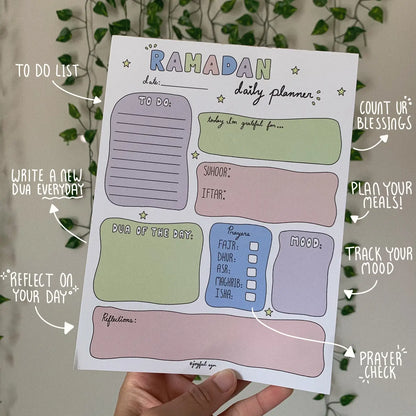 RAMADAN
date:
daily planner
TO DO:
today i'm grateful for...
SUHOOR:
IFTAR:
DUA OF THE DAY:
Prayers
FAJR:
DHUR:
ASR:
MAGHRIB:
ISHA:
MOOD:
Reflections:
TO DO LIST
WRITE A NEW
DUA EVERYDAY
REFLECT ON
YOUR DAY
COUNT UR
BLESSINGS
PLAN YOUR
MEALS!
TRACK YOUR
MOOD
PRAYER
CHECK